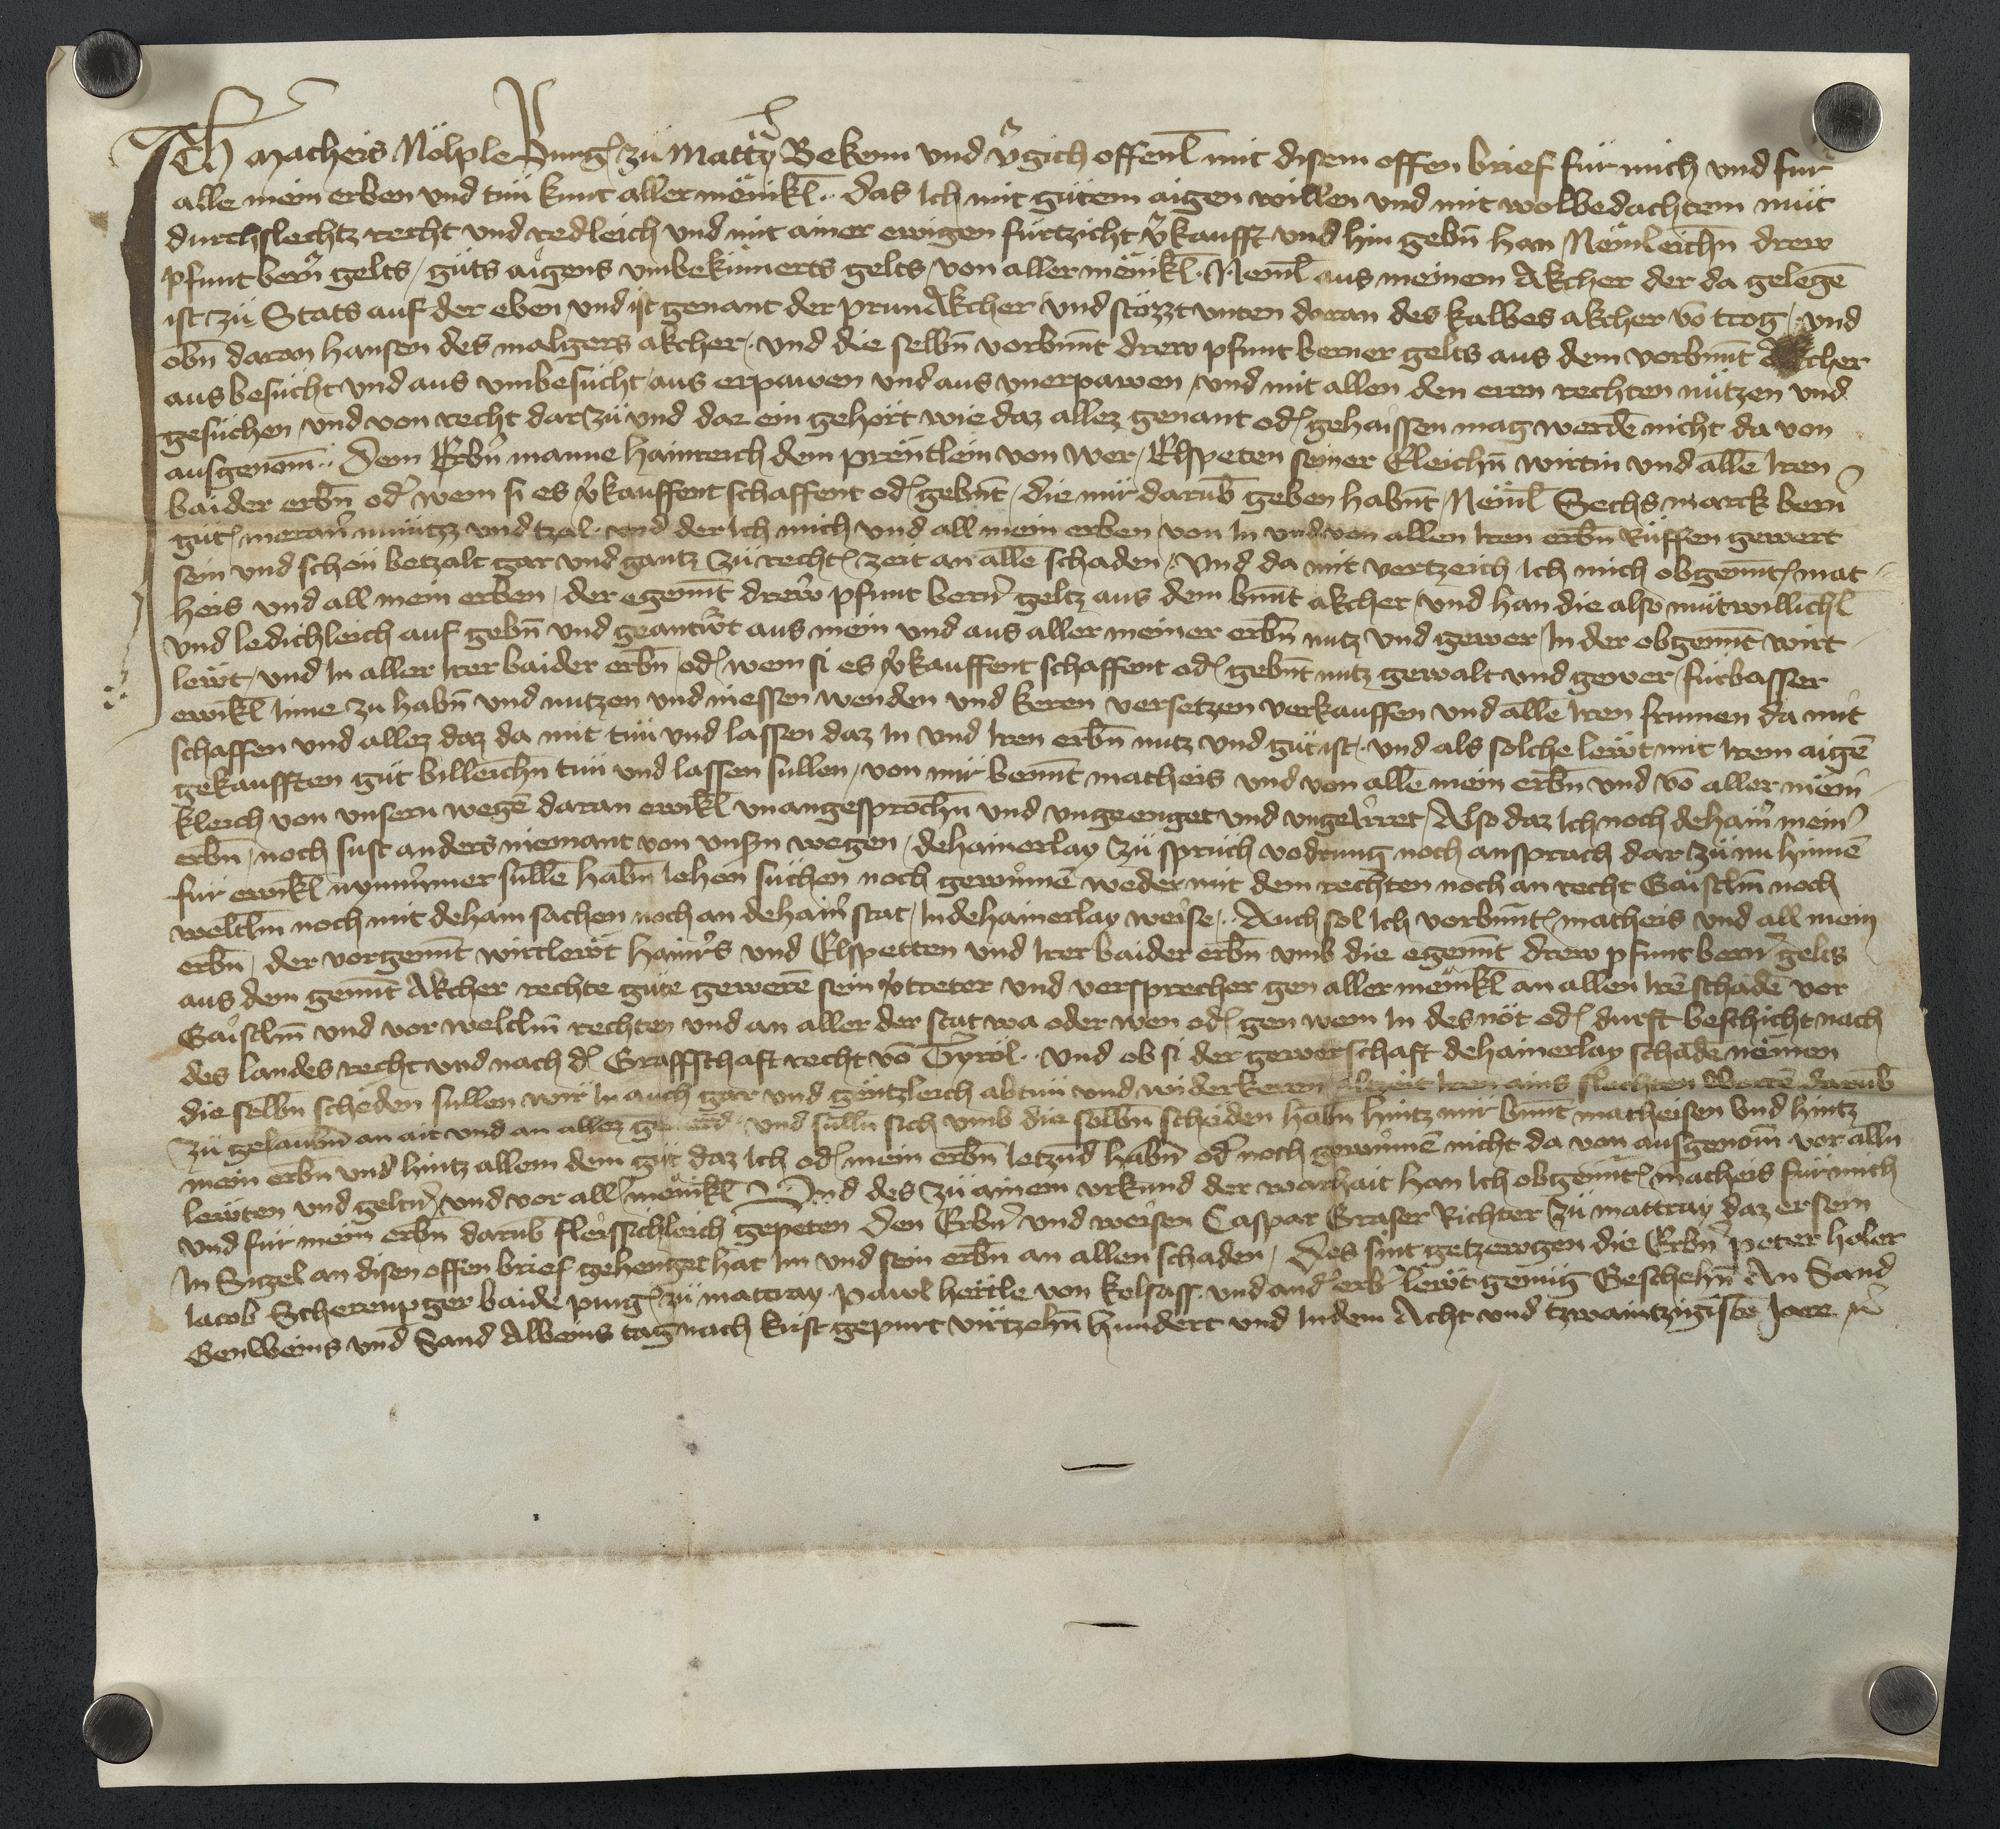 Ich Matheis Nölple Burg͛ zu Mattrӱ Bekenn vnd v͛gich offenl̄ mit disem offen brief für mich vnd für
alle mein erben vnd tůn kunt allermënikl̄ · das Ich mit gůtem aigen willen vnd mit wolbedachtem můt
durchslechtz recht vnd redleich vnd mit ainer ewigen fürtzicht v͛kaufft vnd hin gebn̄ han Nëmleichn̄ drew
pfunt bern͛ gelts / gůts aigens vmbekümerts gelts / von aller mënikl̄ · Nëml̄ aus meinem Akcher der da gelegē
ist zů Stats auf der eben vnd ist genant der prunAkcher vnd stözzt vnten daran des kalbes akcher vō trog / vnd
obn̄ daran hansen des malgers akcher / vnd die selbn̄ vorbn̄nt drew pfunt berner gelts aus dem vorbn̄nt Akcher
aus besůcht vnd aus vmbesůcht / aus erpawen vnd aus vnerpawen / vnd mit allen den eren rechten nützen vnd
gesůchen / vnd von recht darzů vnd dar ein gehört wie daz allez genant od͛ gehaissen mag werdē nicht da von
ausgenom̄ · Dem Erbn͛ manne hainreich dem prëntlein von Wer / Elspeten seiner Eleichn̄ wirtin vnd allē Iren
baider erbn̄ od͛ wem si es v͛kauffent schaffent od͛ gebn̄t / die mir darub̄ geben habn̄t / Nëml̄ Sechs marck bern͛
gůt͛ meran͛ münizz vnd tzal · vnd der Ich mich vnd all mein erben / von In vnd von allen Iren erbn̄ Rüffen gewert
sein vnd schön betzalt gar vnd gantz zů recht͛ zeit an allē schaden / Vnd da mit vertzeich Ich mich obgen̄nt͛ mat
heis vnd all mein erben / der egen̄nt drew pfunt bern͛ geltz aus dem bn̄nt akcher / vnd han die also můtwillichl̄
vnd ledichleich auf gebn̄ vnd geantw͛t aus mein vnd aus aller meiner erbn̄ nutz vnd gewer / In der obgen̄nt wirt
lewt / vnd In aller Irer baider erbn̄ / od͛ wem si es v͛kauffent schaffent od͛ gebn̄t nutz gewalt vnd gewer / fürbasser
ewikl̄ Inne zu habn̄ vnd nutzen vnd niessen wenden vnd keren versetzen verkauffen vnd allē Iren frumen da mit
schaffen vnd allez daz da mit tůn vnd lassen daz In vnd Iren erbn̄ nutz vnd gůt ist · vnd als solche lewt mit Irem aigē
gekaufften gůt billeichn̄ tůn vnd lassen sullen / von mir ben̄nt matheis vnd von allē mein erbn̄ vnd vō aller mëni
kleich von vnsern wegē daran ewikl̄ vnangesprochn̄ vnd vngeenget vnd vngeirret / Also daz Ich noch dehain͛ mein͛
erbn̄ / noch sust anders niemant von vns͛n wegen / dehainerlay zů sprůch vodrung noch ansprach dar zů nu hinnē
für ewikl̄ nymmermer sullē habn̄ Iehen sůchen noch gewinnē weder mit dem rechten noch an recht Gaistlm̄ noch
weltlm̄ noch mit dehain sachen noch an dehain͛ stat / In dehainerlay weise / Auch sol Ich vorbn̄nt͛ matheis vnd all mein
erbn̄ / der vorgen̄nt wirtlewt hainr͛s vnd Elspetten vnd Irer baider erbn̄ vmb die egen̄nt drew pfunt bern͛ gelts
aus dem gen̄nt Akcher rechte gůte gewerē sein v͛treter vnd versprecher gen aller mënikl̄ an allen Irē schadē vor
Gaistlm̄ vnd vor weltlm̄ rechten vnd an aller der stat wa oder wen od͛ gen wem In des nöt od͛ durft beschicht nach
des landes recht vnd nach d͛ Graffschaft recht vō Tyröl · vnd ob si der gewerschaft dehainerlay schadē nëmen
die selbn̄ scheden sullen wir In auch gar vnd gentzleich abtůn vnd widerkeren Iren ains slechten Wortē darub̄
zů gelaubn̄ an ait vnd an allez geuerd · vnd sulln̄ sich vmb die selbn̄ scheiden habn̄ hintz mir bn̄nt matheisen vnd hintz
mein erbn̄ vnd hintz allem dem gůt daz Ich od͛ mein erbn̄ Ietzūd habn̄ od͛ noch gewinnē nicht da von ausgenom̄ vor alln̄
lewten vnd geltn͛ vnd vor all͛ mënikl̄ Vnd des zů ainem vrkund der warhait han Ich obgen̄nt͛ matheis für mich
vnd für mein erbn̄ darub̄ fleissichleich gepeten Den Erbn͛ vnd weisen Caspar Graser Richter zů mattray daz er sein
In Sigel an disen offen brief gehenget hat Im vnd sein erbn̄ an allen schaden / Des sint getzewgen die Erbn͛ peter holer
Iacob Scherenpger baide purg͛ zů mattray / pawl hertle von kolsass · vnd and͛ erb͛ lewt genüg Geschehn̄ An Sand
Genweins vnd Sand Albeins tag nach krist gepurt virtzehn̄ hundert vnd In dem Acht vnd tzwaintzigistē Iare